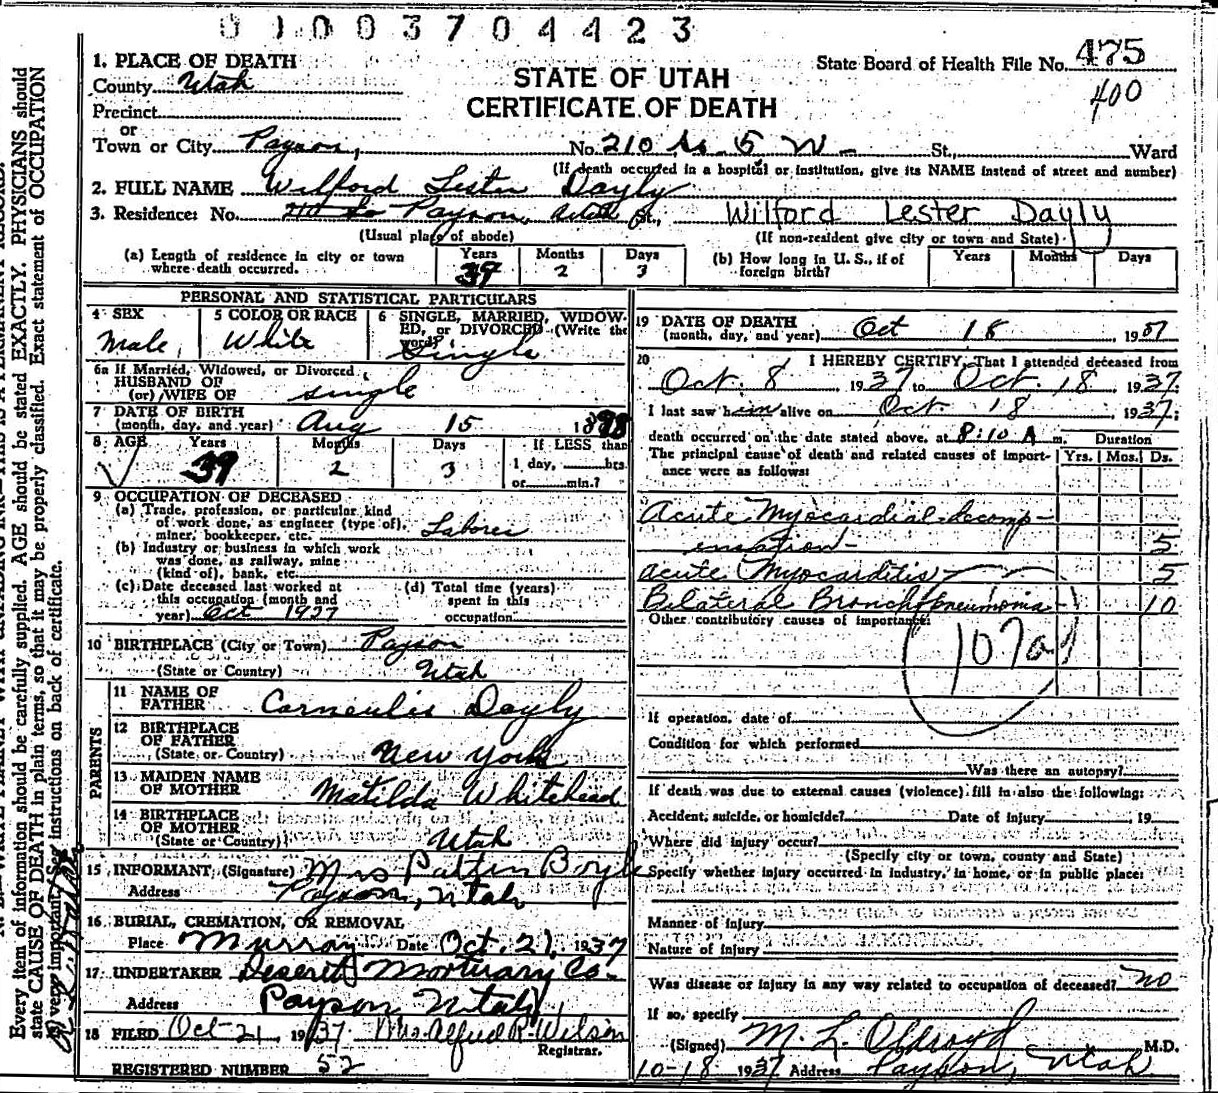 0 1 0 0 3 7 0 4 4 2 3
1. PLACE OF DEATH
County Utah
Precinct
or
Town or City Payson,
STATE OF UTAH
CERTIFICATE OF DEATH
State Board of Health File No. 475
400
No. 210 So. 5 W - St., Ward
(If death occurred in a hospital or institution, give its NAME instead of street and number)
2. FULL NAME Wilford Lester Dayly
3. Residence: No. 210 So Payson, Utah St., Wilford Lester Dayly
(Usual place of abode) (If non-resident give city or town and State)
(a) Length of residence in city or town where death occurred. Years 39 Months 2 Days 3
(b) How long in U. S., if of foreign birth? Years Months Days
PERSONAL AND STATISTICAL PARTICULARS
4 SEX Male,
5 COLOR OR RACE White
6 SINGLE, MARRIED, WIDOWED, or DIVORCED (Write the word) Single
6a If Married, Widowed, or Divorced
HUSBAND OF
(or) WIFE OF single
7 DATE OF BIRTH
(month, day, and year) Aug 15 1898
8 AGE Years 39 Months 2 Days 3
If LESS than
1 day, hrs.
or min.?
9 OCCUPATION OF DECEASED
(a) Trade, profession, or particular kind
of work done, as engineer (type of),
miner, bookkeeper, etc. Laborer
(b) Industry or business in which work
was done, as railway, mine
(kind of), bank, etc.
(c) Date deceased last worked at
this occupation (month and
year) Oct 1937
(d) Total time (years)
spent in this
occupation
10 BIRTHPLACE (City or Town) Payson
(State or Country) Utah
PARENTS
11 NAME OF
FATHER Corneulis Dayly
12 BIRTHPLACE
OF FATHER
(State or Country) New York
13 MAIDEN NAME
OF MOTHER Matilda Whitehead
14 BIRTHPLACE
OF MOTHER
(State or Country) Utah
15 INFORMANT (Signature) Mrs Boyle
Address Payson, Utah
16 BURIAL, CREMATION, OR REMOVAL
Place Murray Date Oct. 21, 1937
17 UNDERTAKER Deseret Mortuary Co.
Address Payson Utah
18 FILED Oct-21 1937 Mrs. Alfred R. Wilson
Registrar.
REGISTERED NUMBER 52
19 DATE OF DEATH
(month, day, and year) Oct 18 1937
20 I HEREBY CERTIFY, That I attended deceased from
Oct. 8 1937 to Oct. 18 1937.
I last saw him alive on Oct 18, 1937;
death occurred on the date stated above, at 8:10 A m.
Duration
The principal cause of death and related causes of importance were as follows:
Yrs. Mos. Ds.
Acute Myocardial decomp-
ensation- 5
Acute Myocarditis 5
Bilateral Bronchopneumonia- 10
Other contributory causes of importance:
107a
If operation, date of
Condition for which performed
Was there an autopsy?
If death was due to external causes (violence) fill in also the following:
Accident, suicide, or homicide? Date of injury , 19
Where did injury occur?
(Specify city or town, county and State)
Specify whether injury occurred in industry, in home, or in public place:
Manner of injury
Nature of injury
Was disease or injury in any way related to occupation of deceased? no
If so, specify
(Signed) M. L. Oldroyd M.D.
10-18 1937 Address Payson, Utah
Every item of information should be carefully supplied. AGE should be stated EXACTLY. PHYSICIANS should
state CAUSE OF DEATH in plain terms, so that it may be properly classified. Exact statement of OCCUPATION
very important. See instructions on back of certificate.